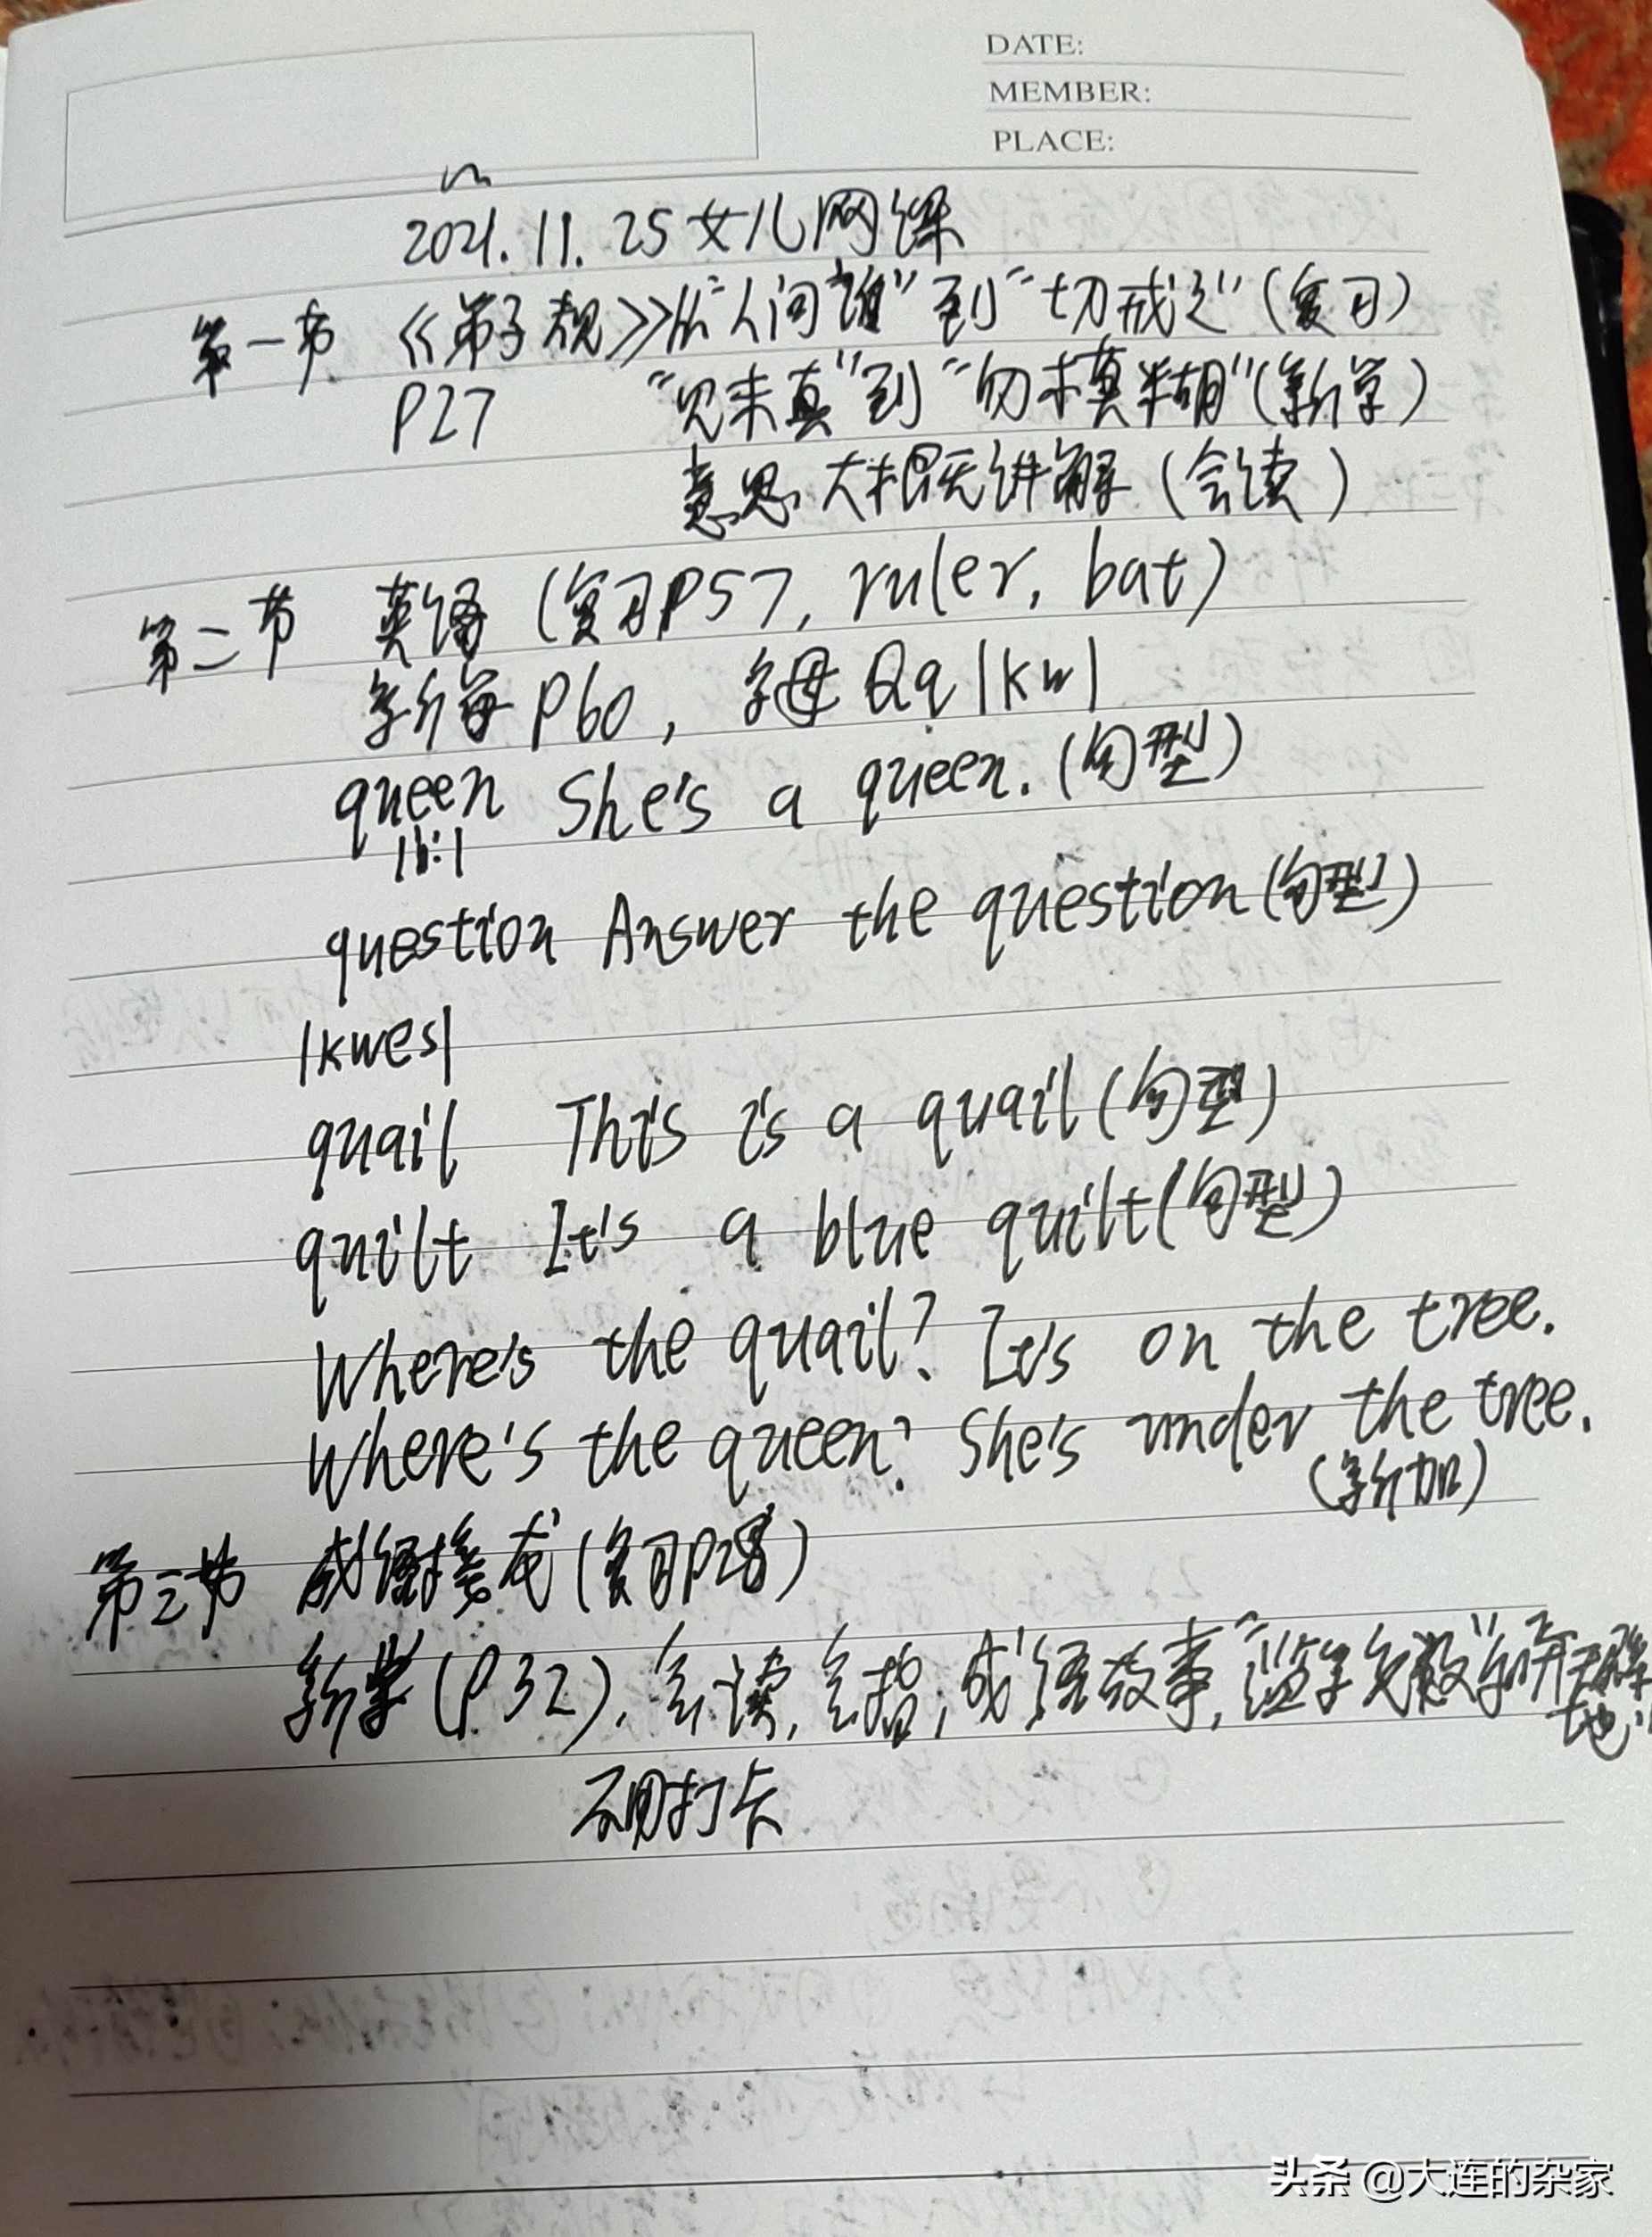 DATE:
MEMBER:
PLACE:
2021.11.25女儿网课
第一节 《弟子规》从“人问谁”到“切戒之”(复习)
P27 “见未真”到“勿模糊”(新学)
意思大概讲解(会读)
第二节 英语(复习P57, ruler, bat)
新学P60, 字母Qq |kw|
queen She's a queen.(句型)
|i:|
question Answer the question(句型)
|kwes|
quail This is a quail(句型)
quilt It's a blue quilt(句型)
Where's the quail? It's on the tree.
Where's the queen? She's under the tree.
(新加)
第三节 成语接龙(复习P28)
新学(P32), 会读, 会指, 成语故事, “滥竽充数”
打卡
头条 @大连的杂家